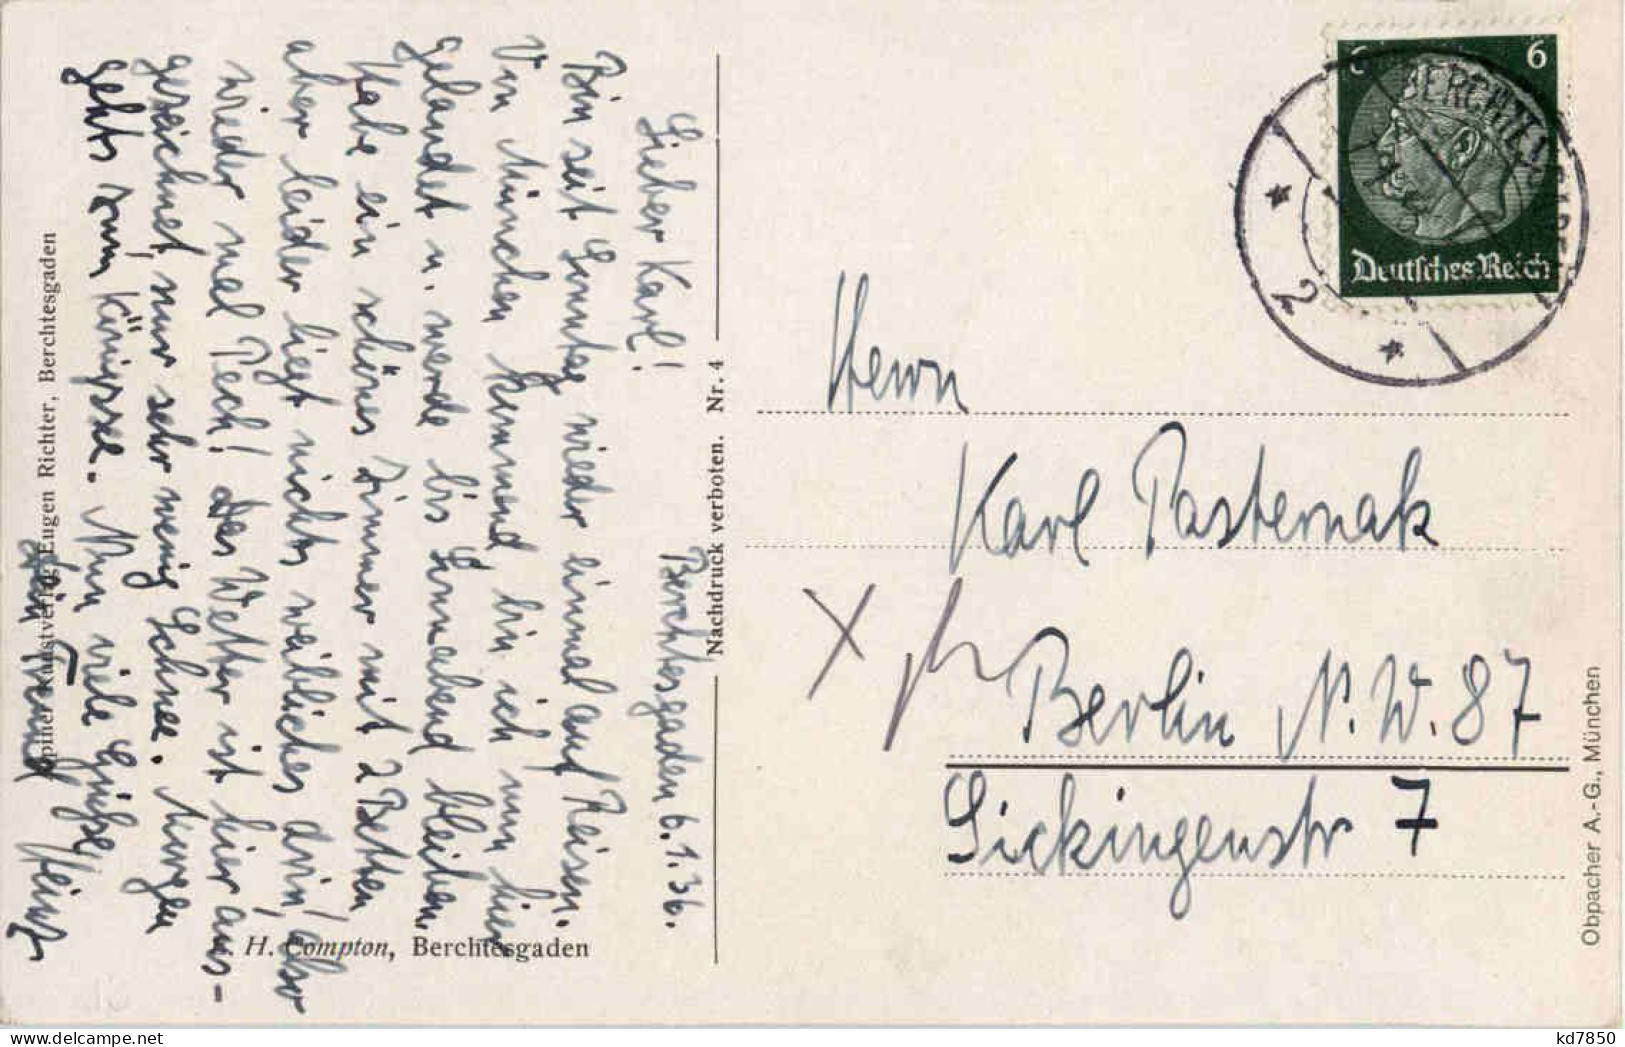 Berchtesgaden 6.1.36.
Lieber Karl!
Bin seit Sonntag wieder einmal auf Reisen.
Von München kommend, bin ich nun hier
gelandet u. werde bis Sonnabend bleiben.
Habe ein schönes Zimmer mit 2 Betten,
aber leider liegt nichts weibliches drin, also
wieder mal Pech! Das Wetter ist hier aus-
gezeichnet, nur sehr wenig Schnee. Morgen
gehts zum Königssee. Nun viele Grüße
Dein Freund Heinz
H. Compton, Berchtesgaden
Kunstverlag Eugen Richter, Berchtesgaden
Nachdruck verboten. Nr. 4
6 6
Deutsches Reich
BERCHTESGADEN
2
Herrn
Karl Pasternak
Berlin N.W. 87
Sickingenstr 7
Obpacher A.-G., München
kd7850